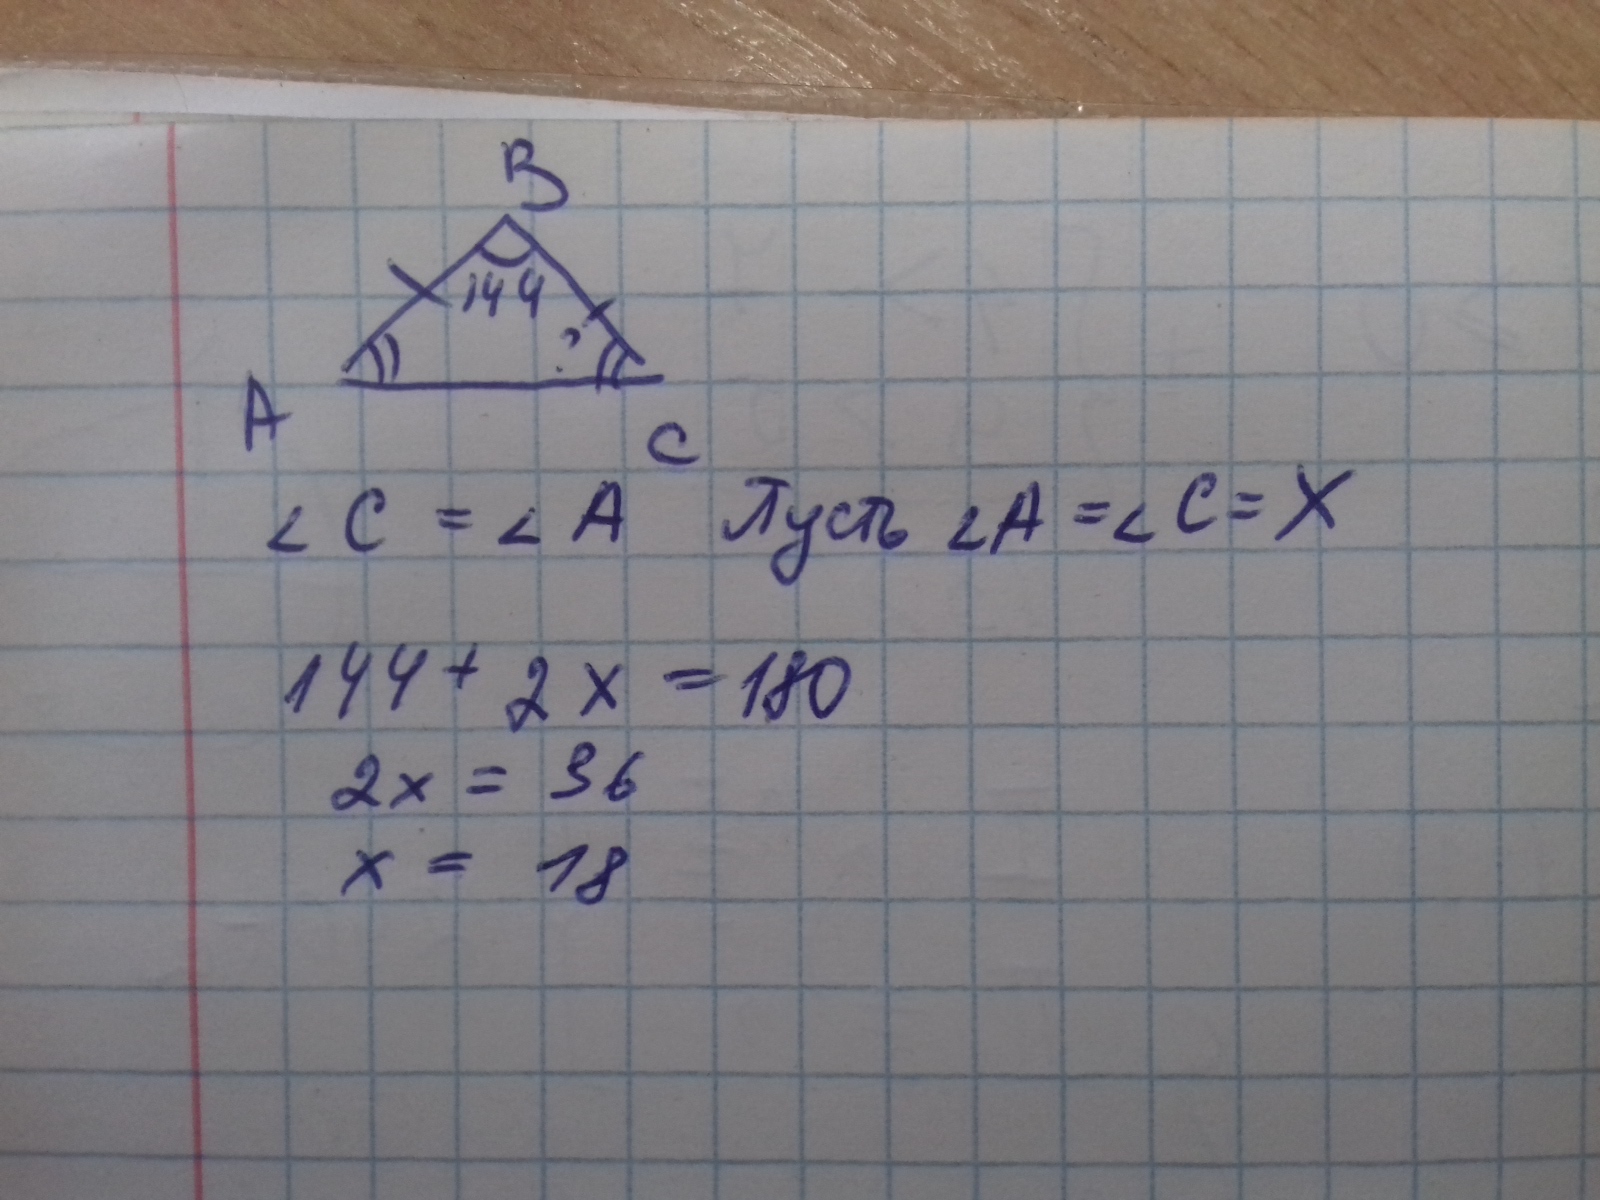 B
144
?
A
C
∠ C = ∠ A Пусть ∠A = ∠C = X
144 + 2x = 180
2x = 36
x = 18